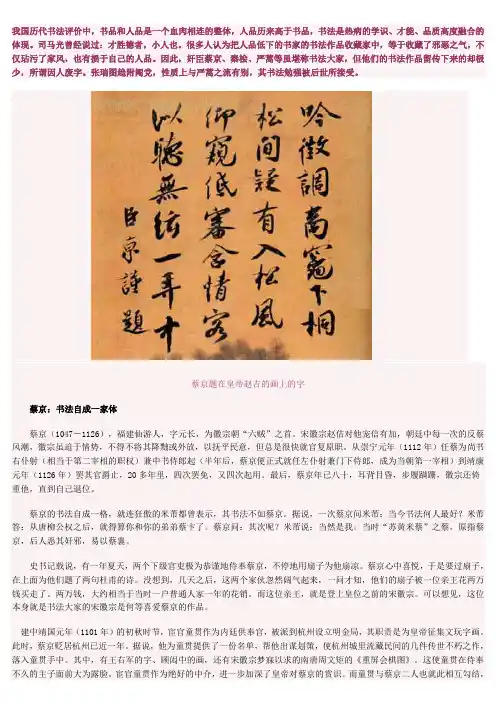 我国历代书法评价中，书品和人品是一个血肉相连的整体，人品历来高于书品，书法是热病的学识、才能、品质高度融合的
体现。司马光曾经说过：才胜德者，小人也。很多人认为把人品低下的书家的书法作品收藏家中，等于收藏了邪恶之气，不
仅玷污了家风，也有损于自己的人品。因此，奸臣蔡京、秦桧、严蒿等虽堪称书法大家，但他们的书法作品留传下来的却极
少，所谓因人废字。张瑞图绝附阉党，性质上与严蒿之流有别，其书法勉强被后世所接受。
吟徵調商竈下桐
松間疑有入松風
仰窺低審含情客
以聽無絃一弄中
臣京謹題
蔡京题在皇帝赵古的画上的字
蔡京：书法自成一家体
蔡京（1047－1126），福建仙游人，字元长，为徽宗朝“六贼”之首。宋徽宗赵佶对他宠信有加，朝廷中每一次的反蔡
风潮，徽宗虽迫于情势，不得不将其降黜或外放，以抚平民愈，但总是很快就官复原职。从崇宁元年（1112年）任蔡为尚书
右仆射（相当于第二宰相的职权）兼中书侍郎起（半年后，蔡京便正式就任左仆射兼门下侍郎，成为当朝第一宰相）到靖康
元年（1126年）罢其官爵止，20多年里，四次罢免，又四次起用。最后，蔡京年已八十，耳背目昏，步履蹒跚，徽宗还倚
重他，直到自己退位。
蔡京的书法自成一格，就连狂傲的米芾都曾表示，其书法不如蔡京。据说，一次蔡京问米芾：当今书法何人最好？米芾
答：从唐柳公权之后，就得算你和你的弟弟蔡卞了。蔡京问：其次呢？米芾说：当然是我。当时“苏黄米蔡”之蔡，原指蔡
京，后人恶其奸邪，易以蔡襄。
史书记载说，有一年夏天，两个下级官吏极为恭谨地侍奉蔡京，不停地用扇子为他扇凉。蔡京心中喜悦，于是要过扇子，
在上面为他们题了两句杜甫的诗。没想到，几天之后，这两个家伙忽然阔气起来，一问才知，他们的扇子被一位亲王花两万
钱买走了。两万钱，大约相当于当时一户普通人家一年的花销。而这位亲王，就是登上皇位之前的宋徽宗。可以想见，这位
本身就是书法大家的宋徽宗是何等喜爱蔡京的作品。
建中靖国元年（1101年）的初秋时节，宦官童贯作为内廷供奉官，被派到杭州设立明金局，其职责是为皇帝征集文玩字画。
此时，蔡京贬居杭州已近一年。据说，他为童贯提供了一份名单，帮他出谋划策，使杭州城里流藏民间的几件传世不朽之作，
落入童贯手中。其中，有王右军的字、顾闳中的画，还有宋徽宗梦寐以求的南唐周文矩的《重屏会棋图》。这使童贯在侍奉
不久的主子面前大为露脸。宦官童贯作为绝好的中介，进一步加深了皇帝对蔡京的赏识。而童贯与蔡京二人也就此相互勾结，